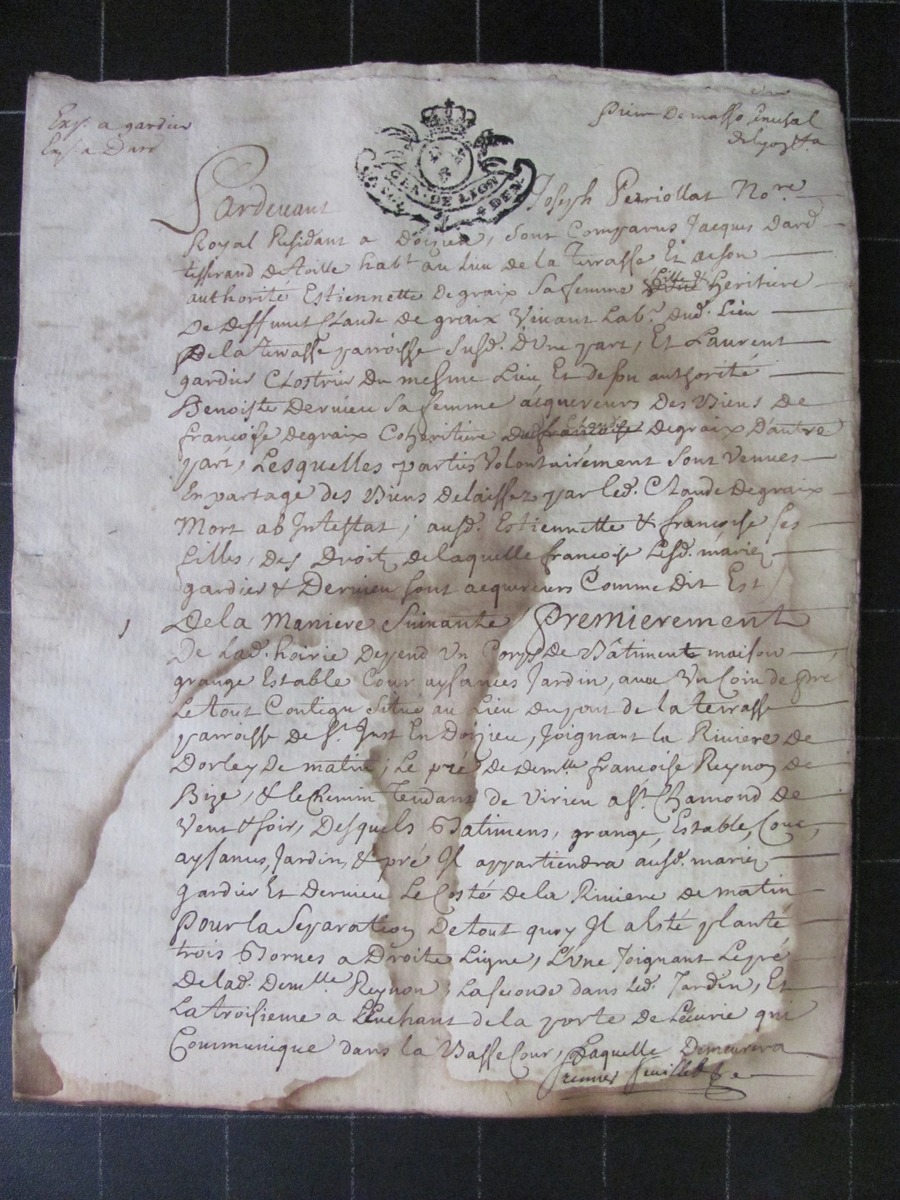 Exp. a gardier
Exp. a Dard
GEN. DE LION
Pardevant Joseph Perriollat Nore
Royal Residant a Doizieu, sont Comparus Jacques Dard
tisserand de toille habt. au Lieu de la Terrasse Et de son
authorité Estiennette Degraix sa femme fille & Heritiere
De deffunct Claude De graix Vivant Labr. dud. Lieu
De la terrasse parroisse susd. D'Une part, Et Laurent
gardier Clostrier Du mesme Lieu Et de son authorité
Benoiste Dernieu sa femme acquereurs Des Biens De
francoise degraix Coheritiere Degraix D'autre
part, Lesquelles parties Volontairement sont Venues
En partage des Biens delaissez par led. Claude Degraix
Mort ab Intestat, ausd. Estiennette & francoise ses
filles, Des Droits de laquelle francoise Lesd. mariez
gardier & Dernieu sont acquereurs Comme Dit Est
1 De la Maniere suivante / Premierement
De Lad. hoirie Depend Un Corps de Bâtiments maison
grange Estable Cour aysances Jardin, avec Un Coin de pre
Le tout Contigu situé au Lieu du pont de la terrasse
parroisse de St. Just En Doizieu, Joignant la Riviere de
Dorley De matin, Le pré de Demlle francoise Reynon de
Bize, & le Chemin Tendant de Virieu a St. Chamond De
Vent & soir, Desquels Batimens, grange, Estable, Cour,
aysances, Jardin, & pré Il appartiendra ausd. mariez
gardier Et Dernieu Le Costé de la Riviere De matin
Pour la Separation De tout quoy Il a esté planté
trois Bornes a Droite Ligne, L'Une Joignant Le pré
De lad. Demlle Reynon, La seconde dans Led. Jardin, Et
La troisieme a L'Euchant de la porte de L'ecurie qui
Communique dans la Basse Cour, Laquelle Demeurera
premier feuillet